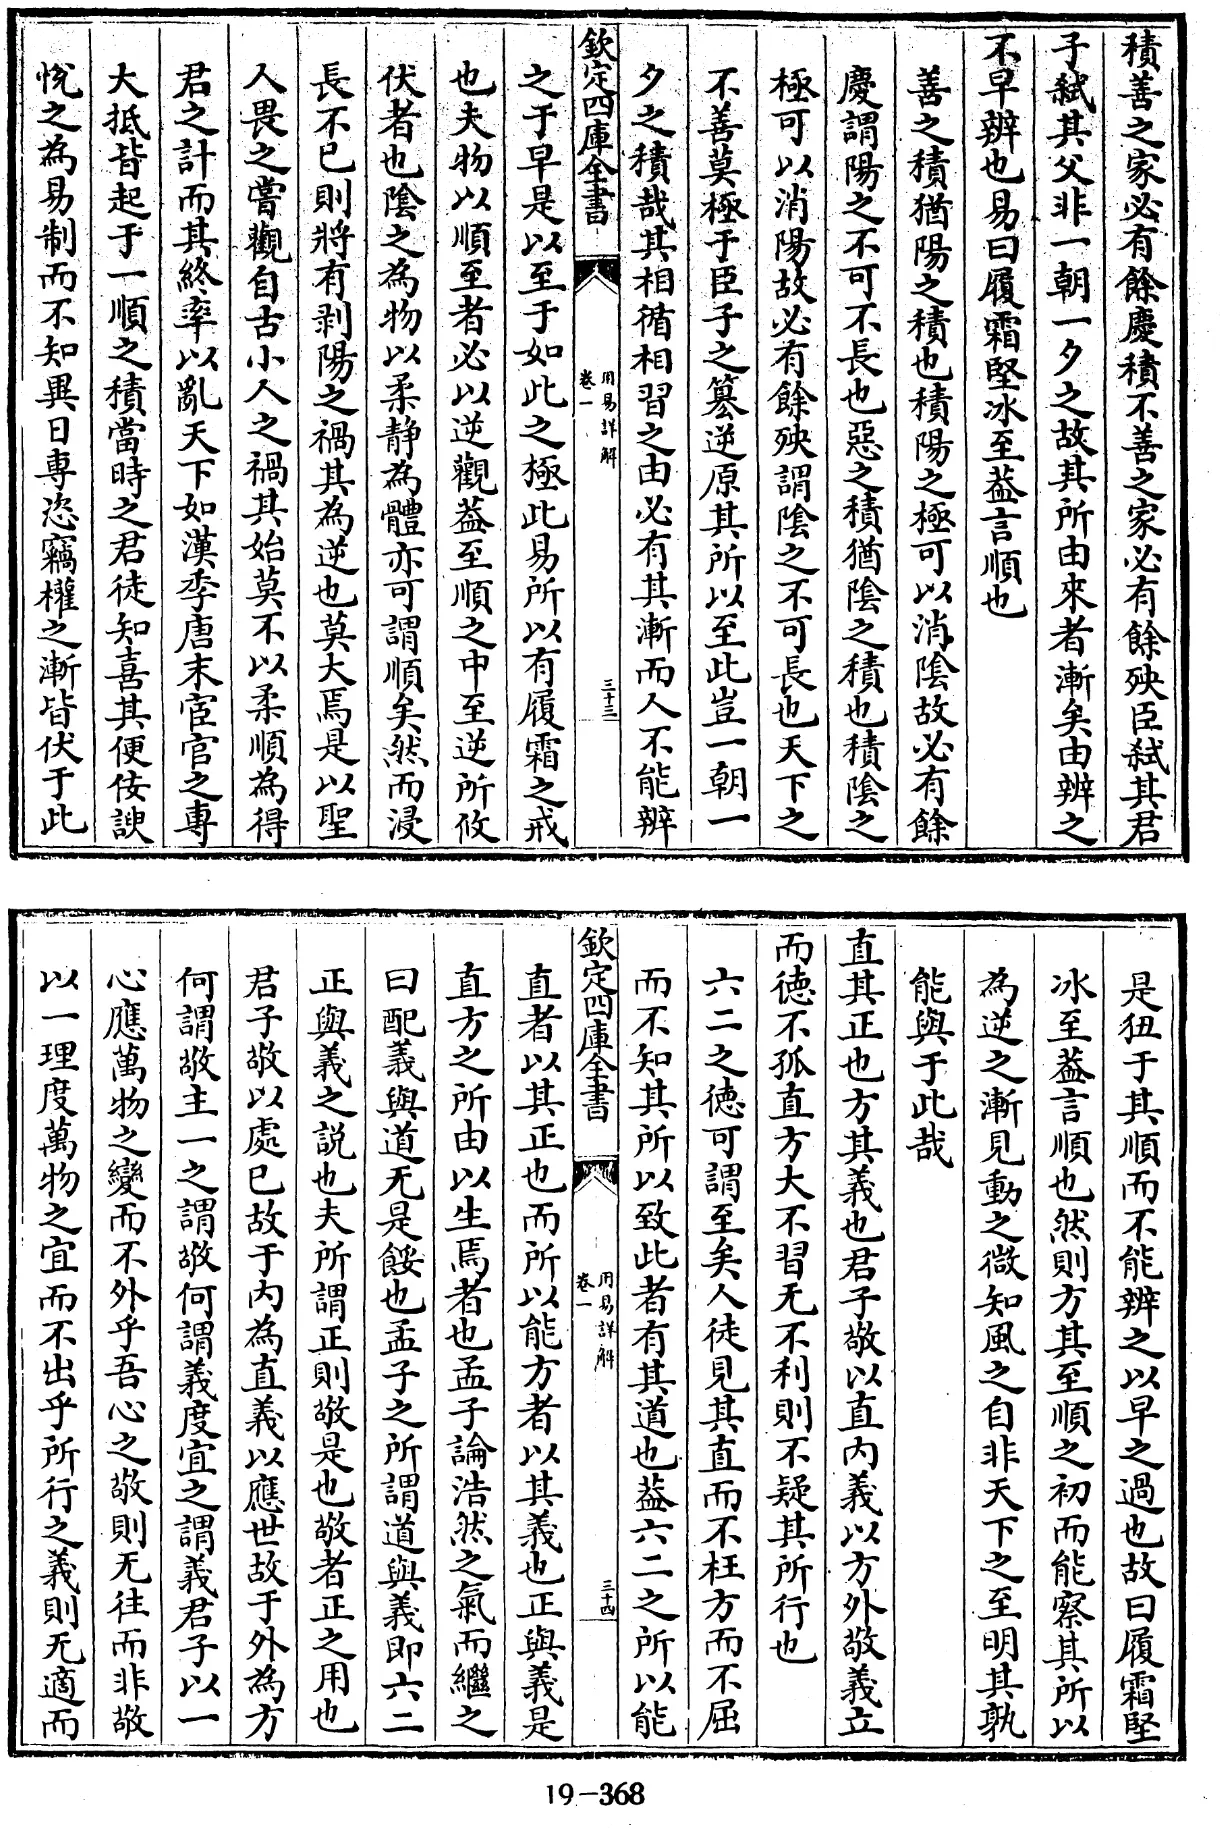 積善之家必有餘慶積不善之家必有餘殃臣弑其君
子弑其父非一朝一夕之故其所由來者漸矣由辨之
不早辨也易曰履霜堅冰至葢言順也
善之積猶陽之積也積陽之極可以消陰故必有餘
慶謂陽之不可不長也惡之積猶陰之積也積陰之
極可以消陽故必有餘殃謂陰之不可長也天下之
不善莫極于臣子之簒逆原其所以至此豈一朝一
夕之積哉其相循相習之由必有其漸而人不能辨
欽定四庫全書
用易詳解
卷一
三十三
之于早是以至于如此之極此易所以有履霜之戒
也夫物以順至者必以逆觀葢至順之中至逆所攸
伏者也陰之為物以柔静為體亦可謂順矣然而浸
長不已則將有剥陽之禍其為逆也莫大焉是以聖
人畏之嘗觀自古小人之禍其始莫不以柔順為得
君之計而其終率以亂天下如漢季唐末宦官之專
大抵皆起于一順之積當時之君徒知喜其便佞諛
悦之為易制而不知異日專恣竊權之漸皆伏于此
是狃于其順而不能辨之以早之過也故曰履霜堅
冰至葢言順也然則方其至順之初而能察其所以
為逆之漸見動之微知風之自非天下之至明其孰
能與于此哉
直其正也方其義也君子敬以直内義以方外敬義立
而徳不孤直方大不習无不利則不疑其所行也
六二之徳可謂至矣人徒見其直而不枉方而不屈
而不知其所以致此者有其道也葢六二之所以能
欽定四庫全書
用易詳解
卷一
三十四
直者以其正也而所以能方者以其義也正與義是
直方之所由以生焉者也孟子論浩然之氣而繼之
曰配義與道无是餒也孟子之所謂道與義即六二
正與義之説也夫所謂正則敬是也敬者正之用也
君子敬以處已故于内為直義以應世故于外為方
何謂敬主一之謂敬何謂義度宜之謂義君子以一
心應萬物之變而不外乎吾心之敬則无往而非敬
以一理度萬物之宜而不出乎所行之義則无適而
19-368